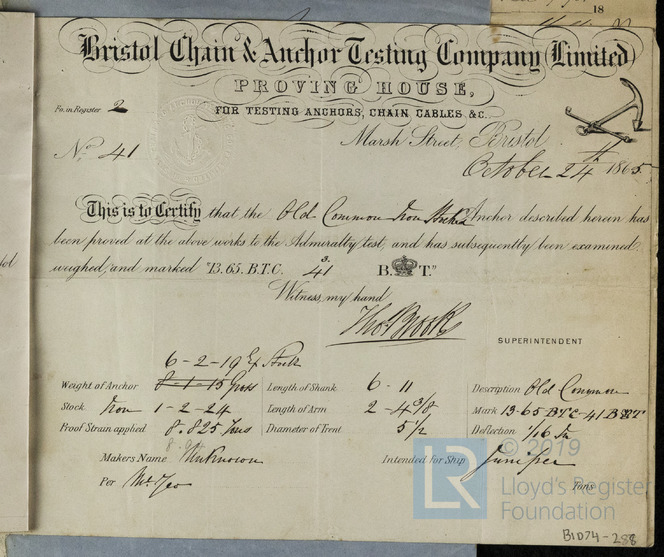 18
Bristol Chain & Anchor Testing Company Limited
PROVING HOUSE,
FOR TESTING ANCHORS, CHAIN CABLES, &C.
Fo. in Register 2
Marsh Street, Bristol
No. 41
October 24th 1865
This is to Certify that the Old Common Iron Stocked Anchor described herein has
been proved at the above works to the Admiralty test, and has subsequently been examined
weighed, and marked "13.65. B.T.C. 3. 41 B. T."
Witness, my hand
Thos Brook
SUPERINTENDENT
6-2-19 Ex Stock
Weight of Anchor 8-1-15 Gross Length of Shank 6-11 Description Old Common
Stock Iron 1-2-24 Length of Arm 2-4 3/8 Mark 13-65 BTC-41 B T
Proof Strain applied 8.825 Tons Diameter of Trent 5 1/2 Deflection 1/16 In
Makers Name Unknown Intended for Ship Juniper
Per Mr. Geo Tons
© 2019
LR Lloyd's Register
Foundation
B1D74-288